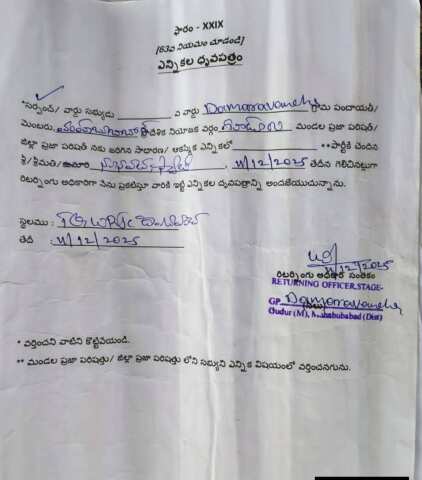 ఫారం - XXIX
[63వ నియమం చూడండి]
ఎన్నికల ధృవపత్రం
*సర్పంచ్/ వార్డు సభ్యుడు వ వార్డు Damaravancha గ్రామ పంచాయతీ/
మెంబరు, ప్రాదేశిక నియోజక వర్గం గూడూరు మండల ప్రజా పరిషత్/
జిల్లా ప్రజా పరిషత్ నకు జరిగిన సాధారణ/ ఆకస్మిక ఎన్నికలలో **పార్టీకి చెందిన
శ్రీ/ శ్రీమతి/కుమారి 11/12/2025 తేదిన గెలిచినట్లుగా
రిటర్నింగు అధికారిగా నేను ప్రకటిస్తూ వారికి ఇట్టి ఎన్నికల ధృవపత్రాన్ని అందజేయుచున్నాను.
స్థలము :
తేది : 11/12/2025
11/12/2025
రిటర్నింగు అధికారి సంతకం
RETURNING OFFICER, STAGE-
GP Damaravancha
Gudur (M), Mahabubabad (Dist)
* వర్తించని వాటిని కొట్టివేయండి.
** మండల ప్రజా పరిషత్తు/ జిల్లా ప్రజా పరిషత్తు లోని సభ్యుని ఎన్నిక విషయంలో వర్తించనగును.